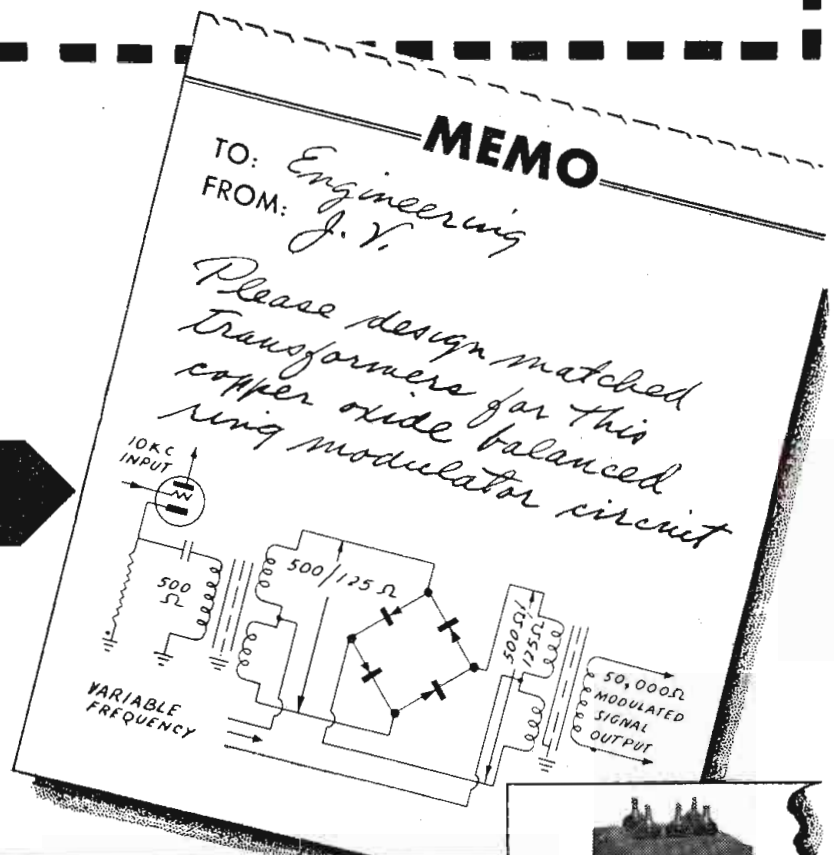 MEMO
TO: Engineering
FROM: J. V.
Please design matched
transformers for this
copper oxide balanced
ring modulator circuit
10KC
INPUT
500
Ω
500/125 Ω
500Ω/
125Ω
50,000Ω
MODULATED
SIGNAL
OUTPUT
VARIABLE
FREQUENCY